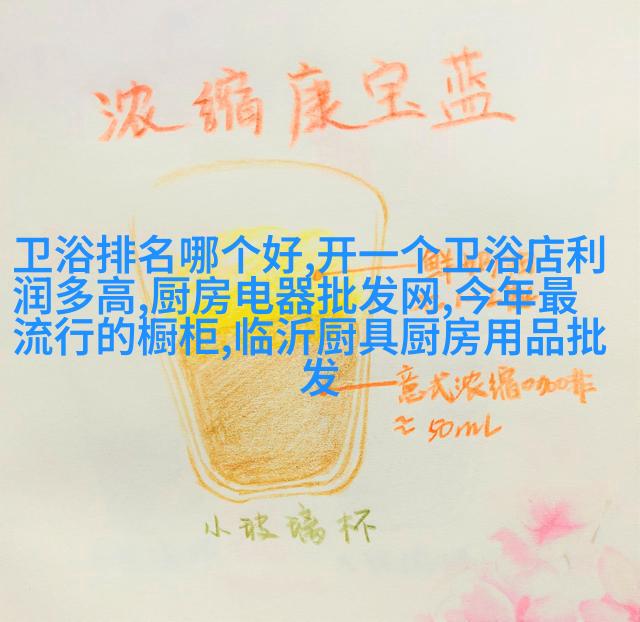 浓缩康宝蓝
卫浴排名哪个好,开一个卫浴店利
润多高,厨房电器批发网,今年最
流行的橱柜,临沂厨具厨房用品批
发
意式浓缩咖啡
≈ 50mL
小玻璃杯